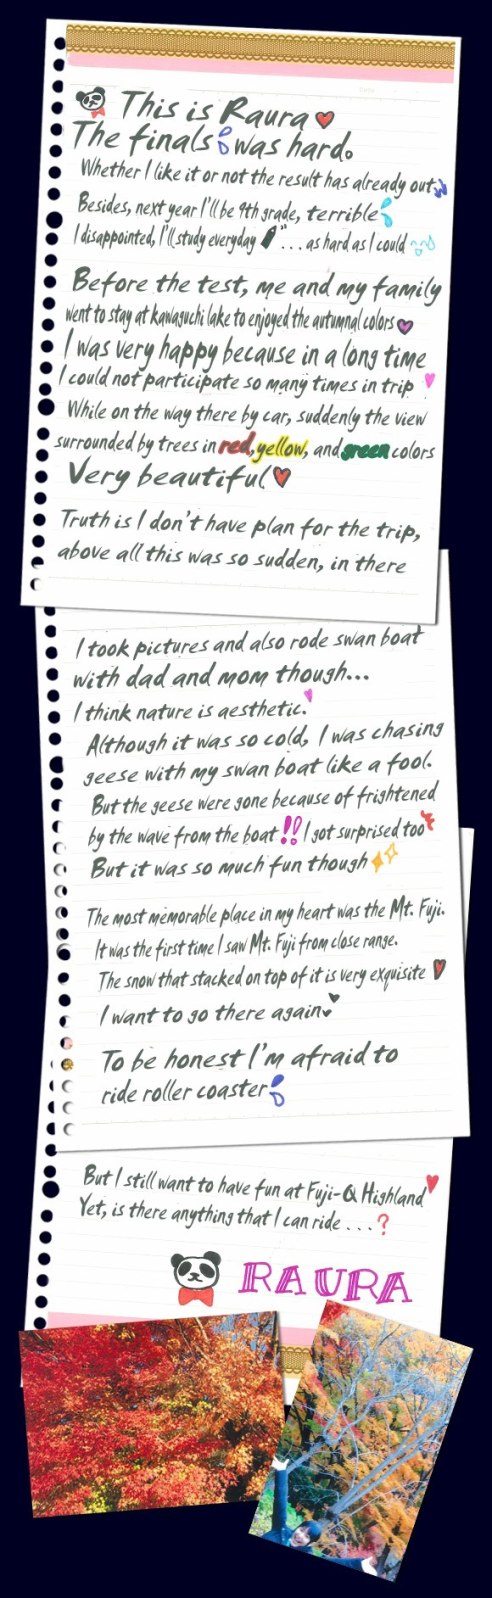 This is Raura
The finals was hard.
Whether I like it or not the result has already out
Besides, next year I'll be 9th grade, terrible
I disappointed, I'll study everyday ... as hard as I could
Before the test, me and my family
went to stay at kawaguchi lake to enjoyed the autumnal colors
I was very happy because in a long time
I could not participate so many times in trip
While on the way there by car, suddenly the view
surrounded by trees in red, yellow, and green colors
Very beautiful
Truth is I don't have plan for the trip,
above all this was so sudden, in there
I took pictures and also rode swan boat
with dad and mom though...
I think nature is aesthetic.
Although it was so cold, I was chasing
geese with my swan boat like a fool.
But the geese were gone because of frightened
by the wave from the boat !! I got surprised too
But it was so much fun though
The most memorable place in my heart was the Mt. Fuji.
It was the first time I saw Mt. Fuji from close range.
The snow that stacked on top of it is very exquisite
I want to go there again.
To be honest I'm afraid to
ride roller coaster
But I still want to have fun at Fuji-Q Highland
Yet, is there anything that I can ride ...?
RAURA